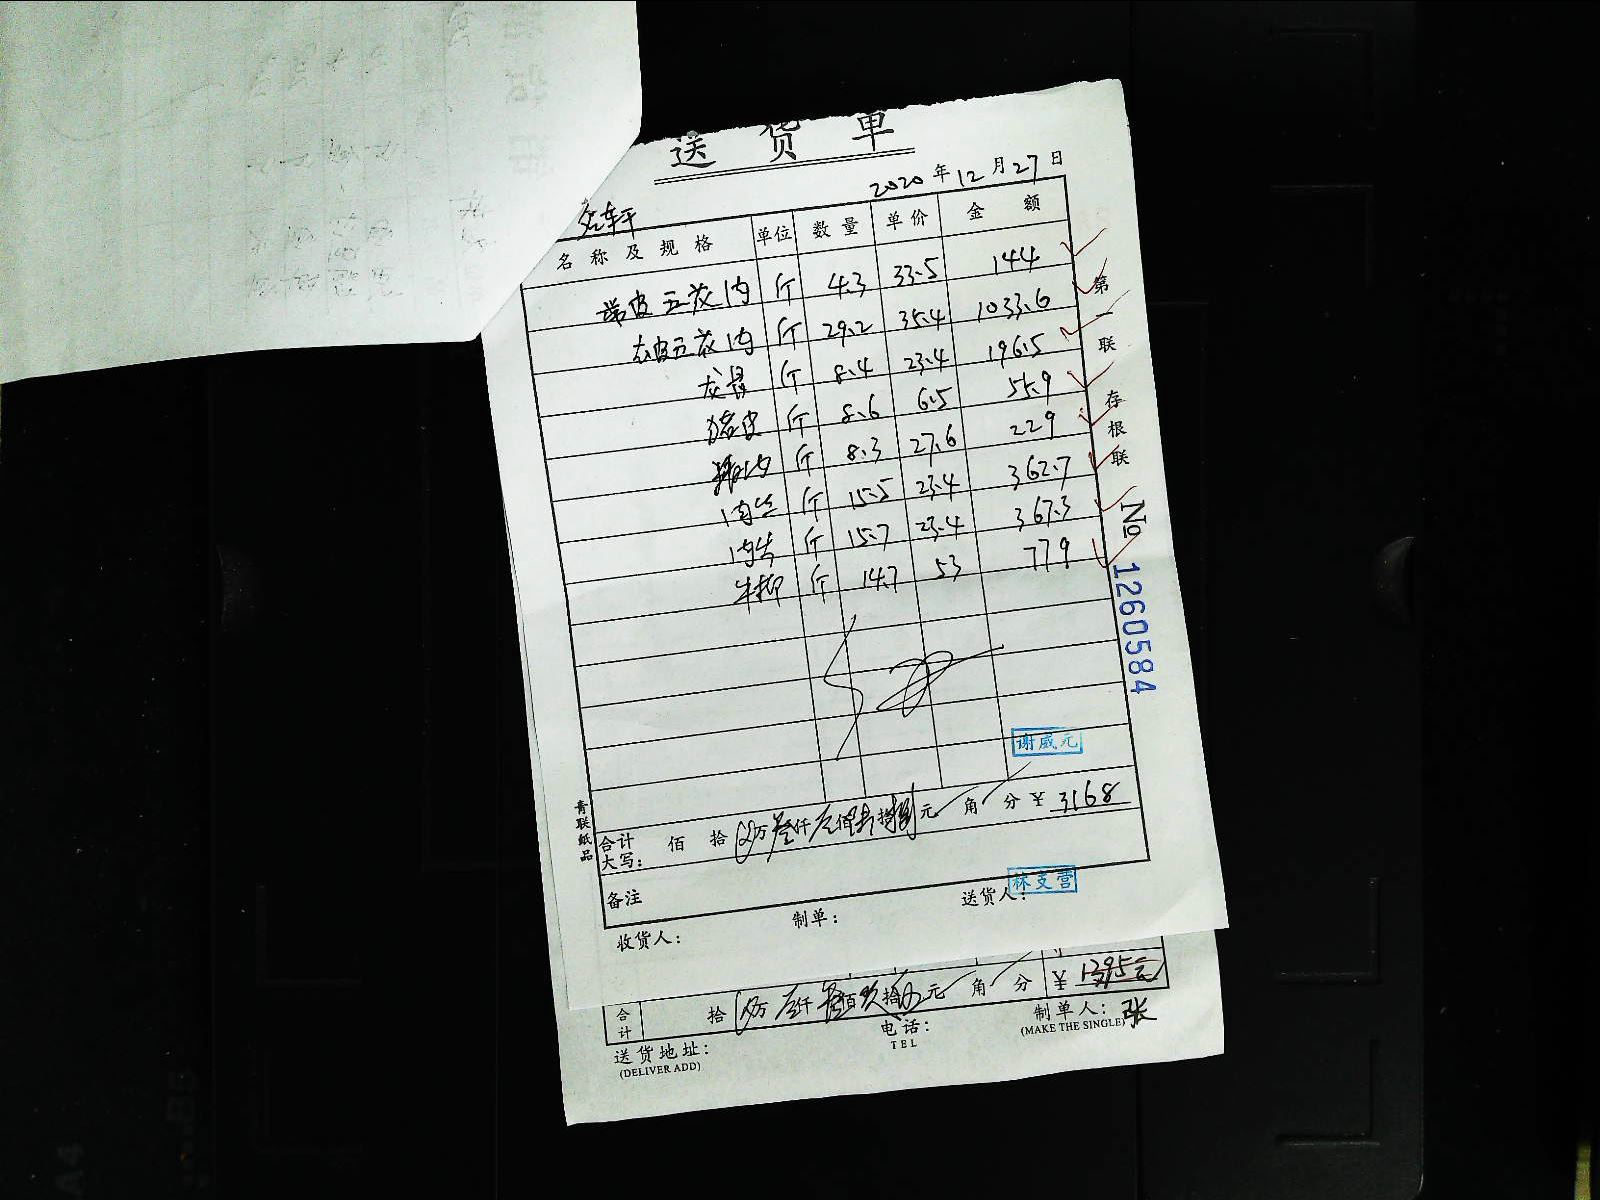 送货单
2020年12月27日
名称及规格 单位 数量 单价 金额
带皮五花肉 斤 4.3 33.5 144
去皮五花肉 斤 29.2 35.4 1033.6
龙骨 斤 8.4 23.4 196.5
猪皮 斤 8.6 6.5 55.9
斤 8.3 27.6 229
肉丝 斤 15.5 23.4 362.7
肉片 斤 15.7 23.4 367.3
牛柳 斤 14.7 53 779
第一联 存根联
№ 1260584
谢威元
青联纸品
合计大写: 佰 拾 万叁仟 佰 拾 元 角 分 ¥ 3168
备注
林支营
收货人: 制单: 送货人:
合计 拾 万 仟 佰 拾 元 角 分 ¥ 1395元
送货地址: 电话: 制单人: 张
(DELIVER ADD) TEL (MAKE THE SINGLE)